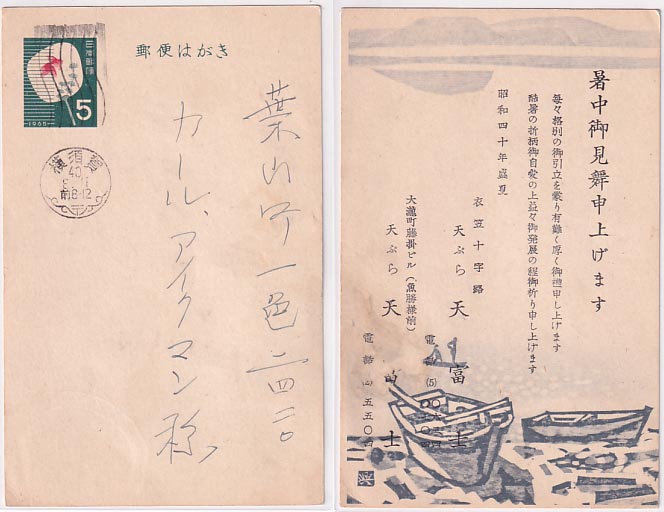 郵便はがき
日本郵便
5
1965
横須賀
40
前8-12
葉山町一色二四二〇
カール、アイクマン 様
暑中御見舞申上げます
毎々格別の御引立を蒙り有難く厚く御禮申し上げます
酷暑の折柄御自愛の上益々御発展の程御祈り申し上げます
昭和四十年盛夏
衣笠十字路
天ぷら 天富士
電話(5)
大瀧町藤掛ビル(魚勝様前)
天ぷら 天富士
電話(2)五五〇四